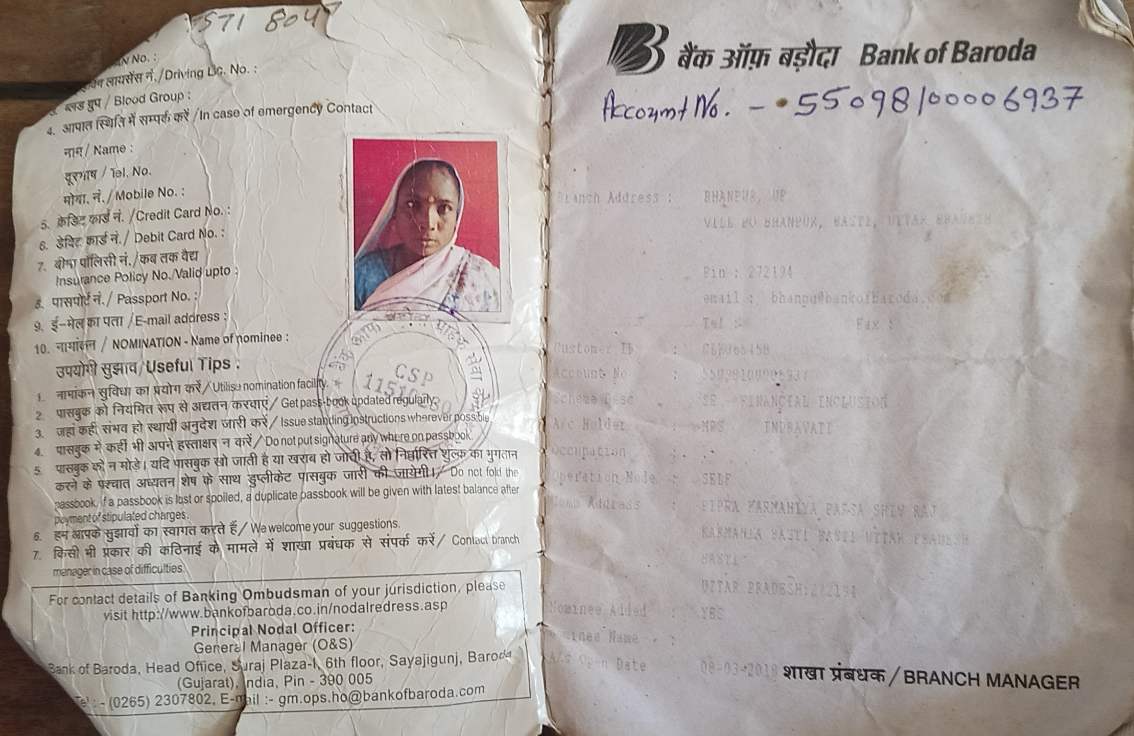 571 804
No. :
लायसेंस नं./Driving Lic. No. :
3. ब्लड ग्रुप / Blood Group :
4. आपात स्थिति में सम्पर्क करें /In case of emergency Contact
नाम / Name :
दूरभाष / Tel. No.
मोबा. नं. / Mobile No. :
5. क्रेडिट कार्ड नं. /Credit Card No. :
6. डेबिट कार्ड नं. / Debit Card No. :
7. बीमा पॉलिसी नं./कब तक वैद्य
Insurance Policy No./Valid upto :
8. पासपोर्ट नं. / Passport No. :
9. ई-मेल का पता /E-mail address :
10. नामांकन / NOMINATION - Name of nominee :
उपयोगी सुझाव/Useful Tips :
1. नामांकन सुविधा का प्रयोग करें/Utilise nomination facility.
2. पासबुक को नियमित रूप से अद्यतन करवाएं/ Get pass-book updated regularly.
3. जहां कहीं संभव हो स्थायी अनुदेश जारी करें/ Issue standing instructions wherever possible
4. पासबुक में कहीं भी अपने हस्ताक्षर न करें/ Do not put signature any where on passbook.
5. पासबुक को न मोडे। यदि पासबुक खो जाती है या खराब हो जाती है, तो निर्धारित शुल्क का भुगतान
करने के पश्चात अध्यतन शेष के साथ डुप्लीकेट पासबुक जारी की जायेगी।/ Do not fold the
passbook, if a passbook is lost or spoiled, a duplicate passbook will be given with latest balance after
payment of stipulated charges.
6. हम आपके सुझावों का स्वागत करते हैं/ We welcome your suggestions.
7. किसी भी प्रकार की कठिनाई के मामले में शाखा प्रबंधक से संपर्क करें/ Contact branch
manager in case of difficulties.
CSP
For contact details of Banking Ombudsman of your jurisdiction, please
visit http://www.bankofbaroda.co.in/nodalredress.asp
Principal Nodal Officer:
General Manager (O&S)
Bank of Baroda, Head Office, Suraj Plaza-I, 6th floor, Sayajigunj, Baroda
(Gujarat), India, Pin - 390 005
Tel : - (0265) 2307802, E-mail :- gm.ops.ho@bankofbaroda.com
बैंक ऑफ़ बड़ौदा Bank of Baroda
Account No. - 55098100006937
Branch Address : BHANPUR, UP
VILL PO BHANPUR, BASTI, UTTAR PRADESH
Pin : 272194
email :
Tel : Fax :
Customer ID :
Account No : 55098100006937
Scheme Desc : SB - FINANCIAL INCLUSION
A/c Holder : MRS INDRAVATI
Occupation :
Operation Mode : SELF
Comm Address :
KARMAHIYA BASTI BASTI UTTAR PRADESH
BASTI
UTTAR PRADESH:272194
Nominee Added : YES
Nominee Name :
A/c Open Date 08-03-2018
शाखा प्रंबधक / BRANCH MANAGER